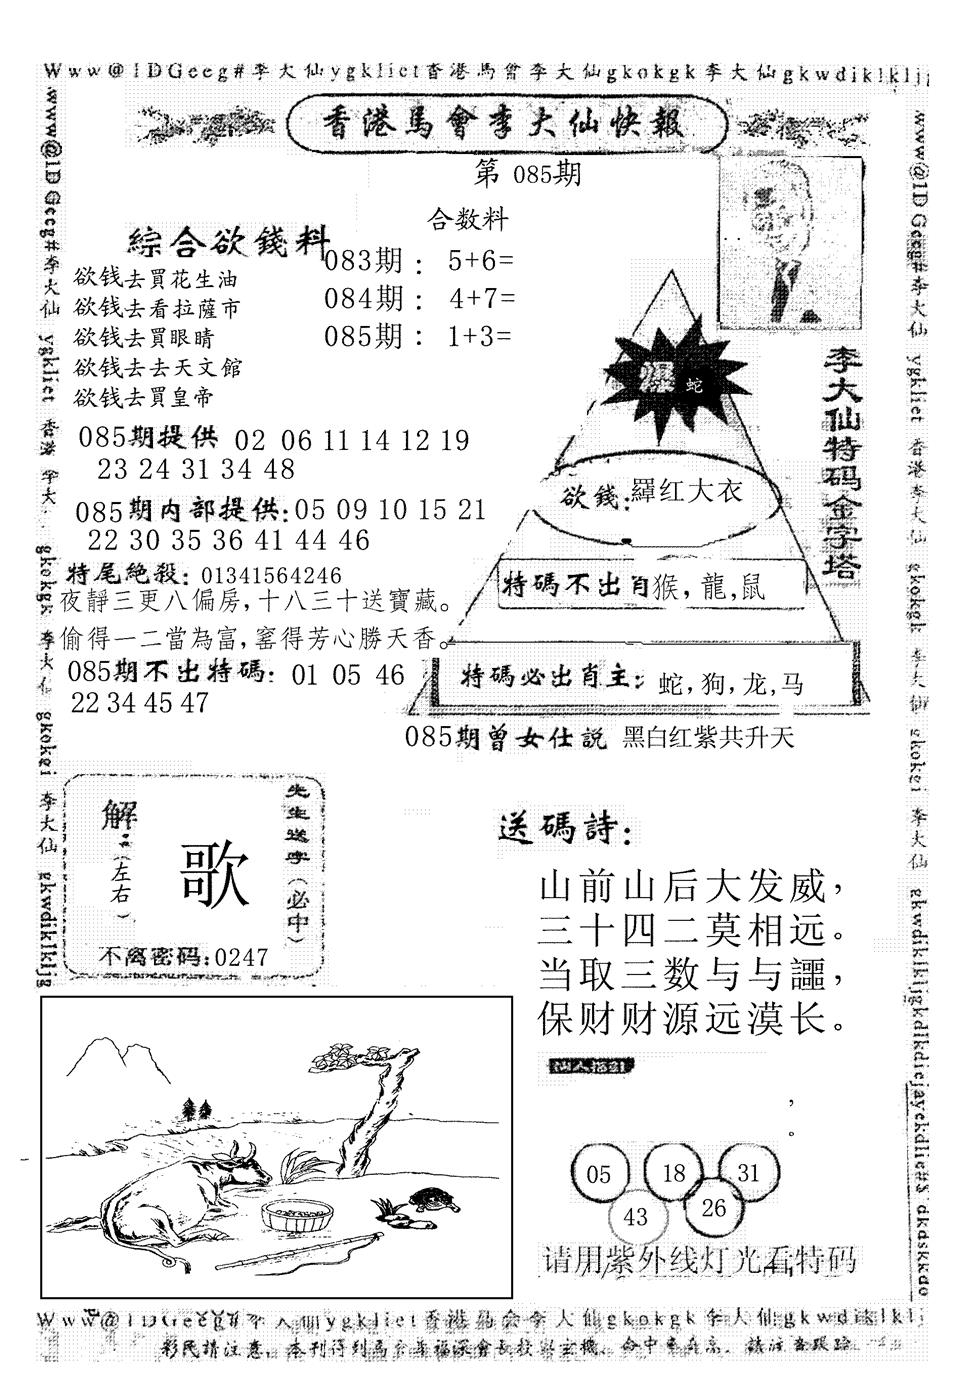 Www@1DGeeg#李大仙ygkliet香港馬會李大仙gkokgk李大仙gkwdiklkljg
香港馬會李大仙快報
第 085期
合数料
綜合欲錢料
083期： 5+6=
084期： 4+7=
085期： 1+3=
欲钱去買花生油
欲钱去看拉薩市
欲钱去買眼睛
欲钱去去天文館
欲钱去買皇帝
爆 蛇
李大仙特码金字塔
欲錢:羅红大衣
特碼不出肖猴，龍,鼠
特碼必出肖主: 蛇,狗,龙,马
085期提供 02 06 11 14 12 19
23 24 31 34 48
085期内部提供:05 09 10 15 21
22 30 35 36 41 44 46
特尾絶殺: 01341564246
夜靜三更八偏房,十八三十送寶藏。
偷得一二當為富,窰得芳心勝天香。
085期不出特碼: 01 05 46
22 34 45 47
085期曾女仕説 黑白红紫共升天
先生送字(必中)
解:(左右)
歌
不离密码:0247
送碼詩:
山前山后大发威，
三十四二莫相远。
当取三数与与讍，
保财财源远漠长。
，
。
05 18 31
43 26
请用紫外线灯光看特码
www@1DGeeg#李大仙 ygkliet 香港 李大 gkokgk 李大仙 gkokei 李大仙 gkwdiklkljg
www@1DGeeg#李大仙 ygkliet 香港李大仙 gkokgk 李大仙 gkokei 李大仙 gkwdiklkljgkdlkdiejayekdlie#$ dkdskkdo
Www@1DGeeg#李大仙ygkliet香港马会李大仙gkokgk李大仙gkwdiklklj
彩民請注意，本刊得到馬